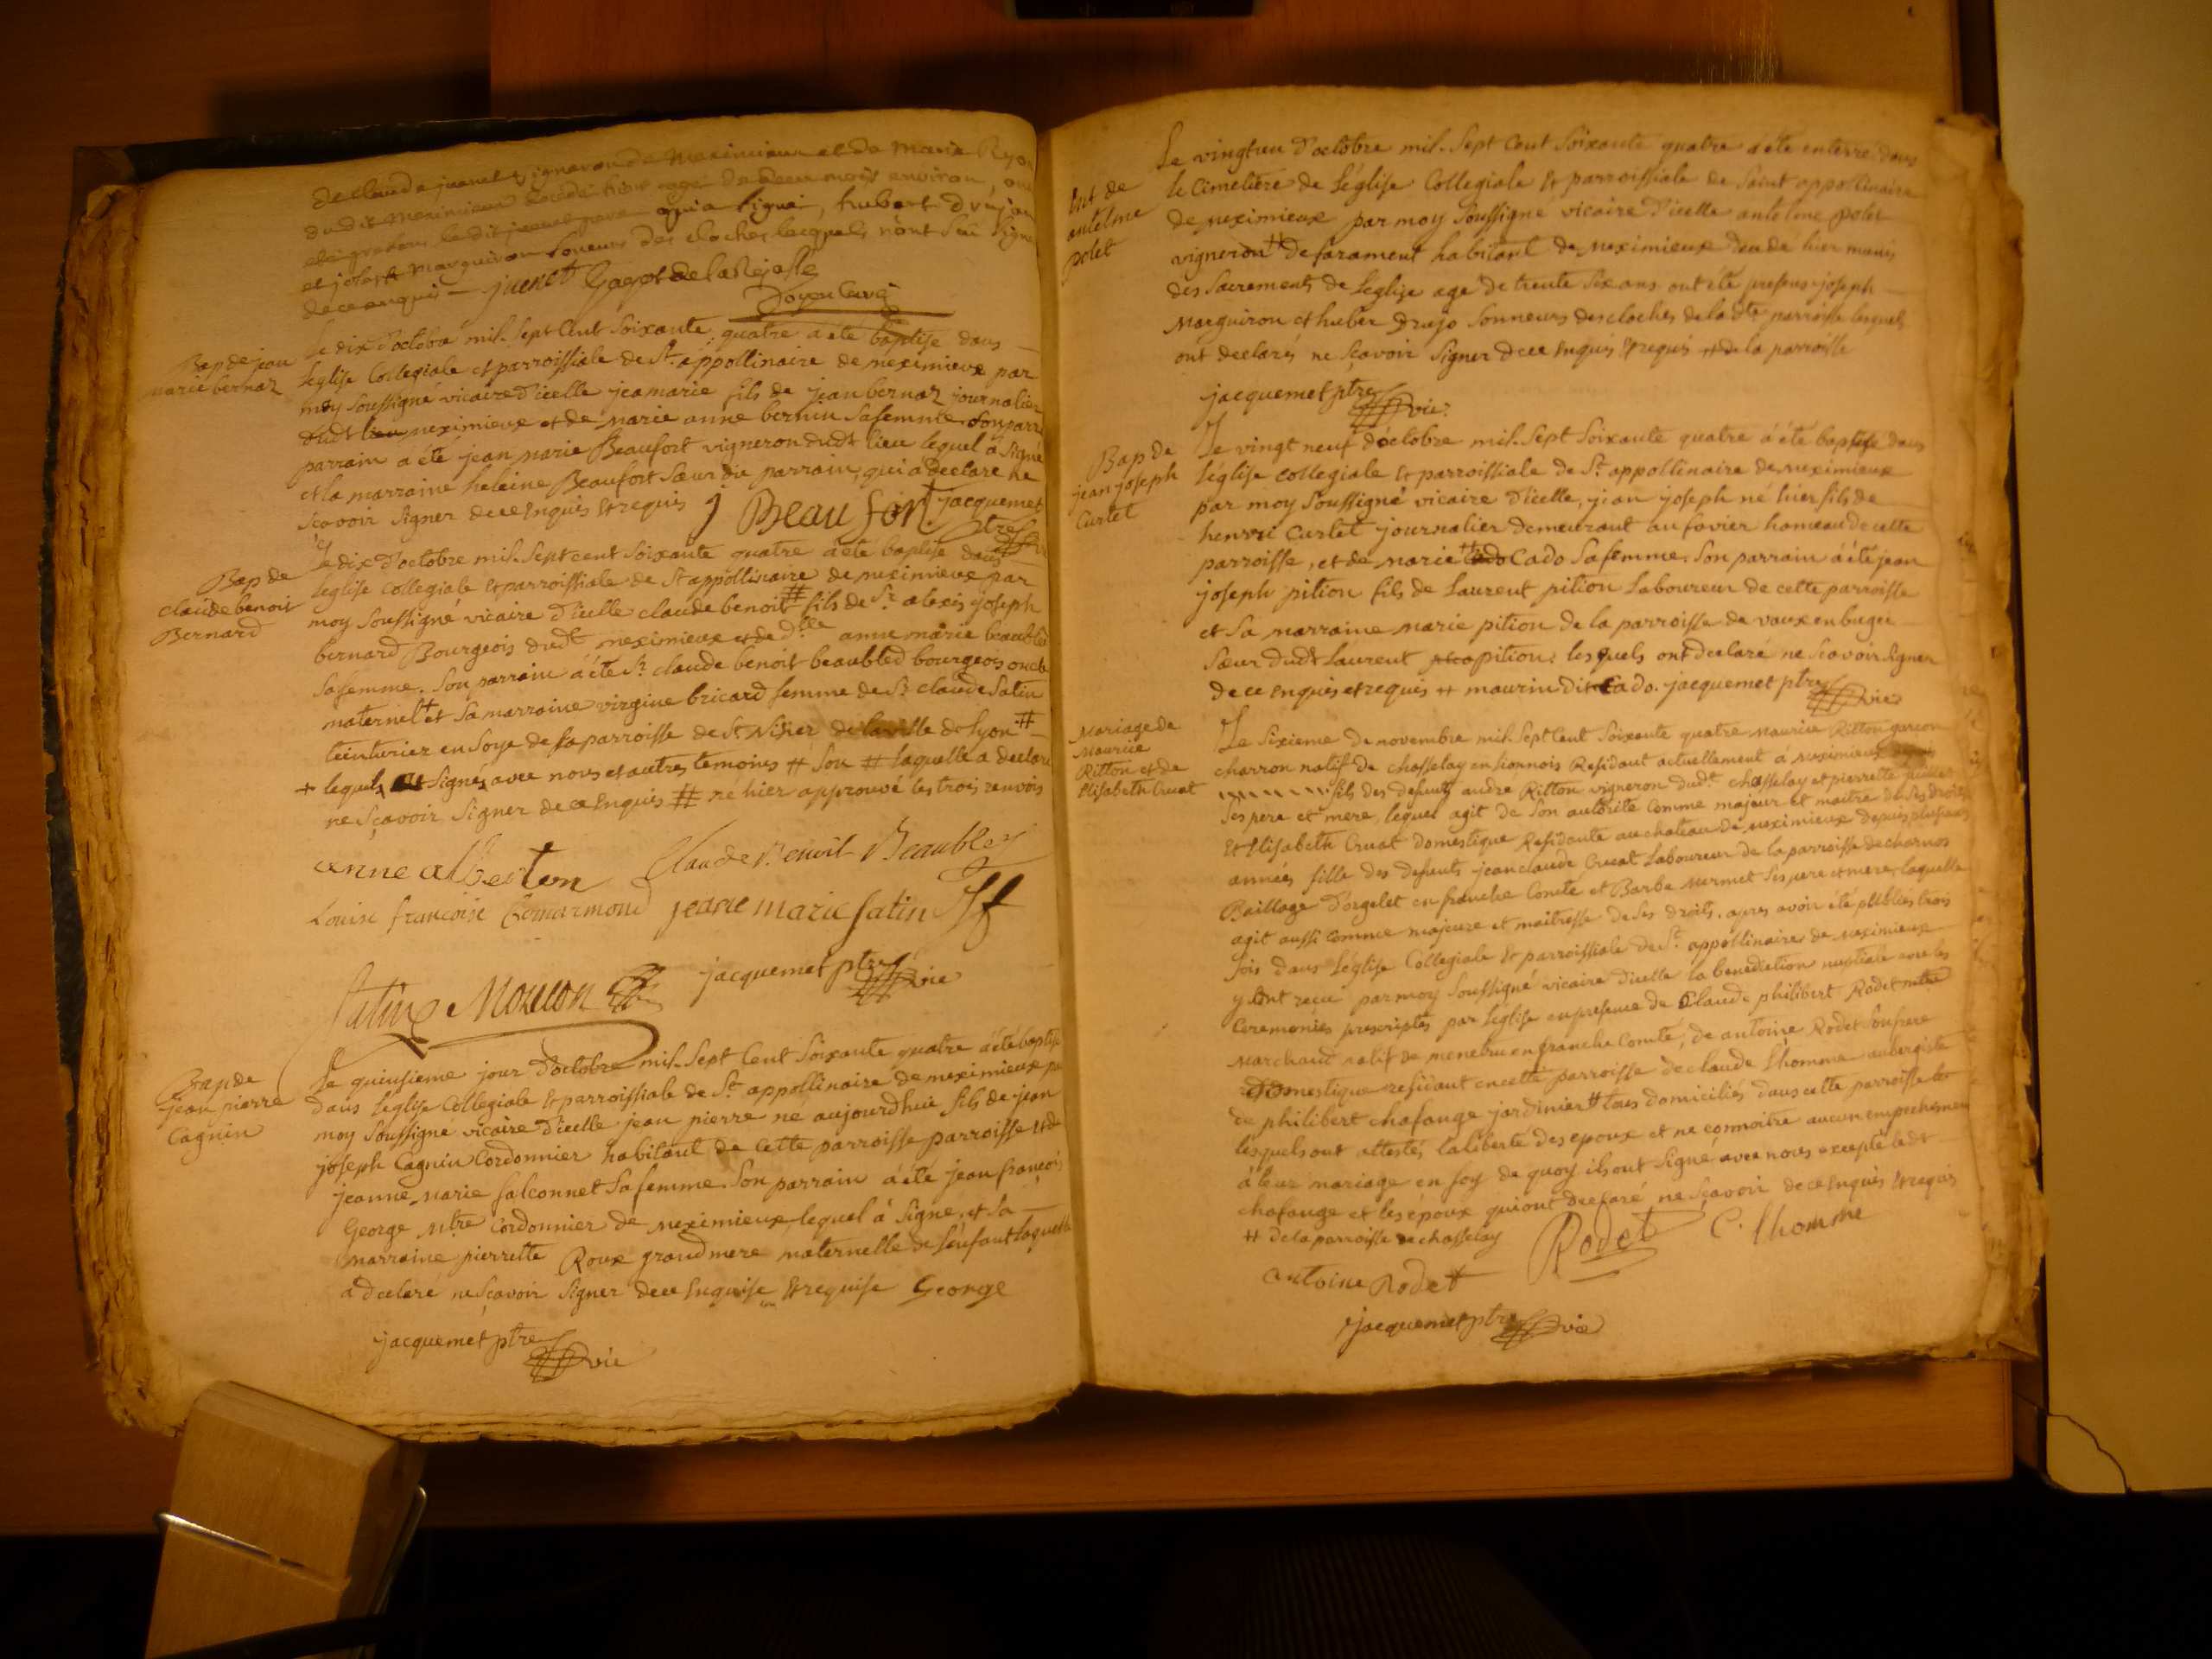 de Claude juenet vigneron de meximieux et de marie
du dit meximieux decedé hier agé de deux mois environ, ont
été presens le dit juenet pere qui a signé, hubert drujon
et joseph marguiron soneurs des cloches lesquels n'ont sçu signer
de ce enquis — juenet Gagot de la Rejasse
Doyen Curé
Bap de jean
marie bernaz
Le dix d'octobre mil. Sept Cent soixante quatre a été baptisé dans
leglise Collegiale et parroissiale de St. appollinaire de meximieux par
moy soussigné vicaire d'icelle jeamarie fils de jean bernaz journalier
dudt lieu meximieux et de marie anne bernin sa femme. Son parr
parrain a été jean marie Beaufort vigneron dudt lieu lequel a signé
et la marraine heleine Beaufort sœur du parrain, qui a declaré ne
scavoir signer de ce enquis et requis j Beaufort jacquemet
ptre
Bap de
claude benoit
Bernard
Le dix d'octobre mil. Sept cent soixante quatre a été baptisé dans
leglise collegiale et parroissiale de St appollinaire de meximieux par
moy soussigné vicaire d'icelle claude benoit # fils de Sr. alexis joseph
bernard Bourgeois dudt meximieux et de dlle anne marie beaubled
sa femme. Son parrain a été Sr. claude benoit beaubled bourgeois oncle
maternel + et sa marraine virgine bricard femme de Sr. claude Satin
teinturier en soye de sa parroisse de St Nisier de la ville de lyon #
+ lequels ont signés avec nous et autres temoins # son # laquelle a declaré
ne sçavoir signer de ce enquis # né hier approuvé les trois renvois
anne alberton Claude Benoit Beaubled
Louise francoise Comarmond jeane marie satin
Satin Mouton jacquemet ptre vic
Bap de
jean pierre
Cagnin
Le quinsieme jour d'octobre mil. Sept Cent Soixante quatre a été baptisé
dans l'eglise Collegiale et parroissiale de St. appollinaire de meximieux par
moy soussigné vicaire d'icelle jean pierre né aujourdhui fils de jean
joseph Cagnin Cordonnier habitant de cette parroisse parroisse et de
jeanne marie falconnet sa femme. Son parrain a été jean françois
George Mtre cordonnier de meximieux lequel a signé, et sa
marraine pierrette Roux grand mere maternelle de l'enfant laquelle
a declaré ne scavoir signer de ce enquise et requise George
jacquemet ptre
vic
Ent de
antelme
polet
Le vingt un d'octobre mil. Sept Cent Soixante quatre a été enterré dans
le Cimetiere de l'église Collegiale et parroissiale de Saint appollinaire
de meximieux par moy soussigné vicaire d'icelle antelme polet
vigneron # de faramant habitant de meximieux decedé hier muni
des sacrements de leglise agé de trente six ans ont été presens joseph
Marguiron et huber drujo sonneurs des cloches de la dte parroisse lesquels
ont declarés ne sçavoir signer de ce enquis et requis # de la parroisse
jacquemet ptre
vic.
Bap de
jean joseph
Curtet
Le vingt neuf d'octobre mil. Sept Soixante quatre a été baptisé dans
l'église collegiale et parroissiale de St. appollinaire de meximieux
par moy soussigné vicaire d'icelle, jean joseph né hier fils de
henrri Curtet journalier demeurant au favier hameau de cette
parroisse, et de marie # Cado sa femme. Son parrain a été jean
joseph pition fils de Laurent pition Laboureur de cette parroisse
et sa marraine marie pition de la parroisse de vaux en bugei
sœur dudt Laurent pition: les quels ont declaré ne sçavoir signer
de ce enquis et requis # maurin dit Cado. jacquemet ptre
vic
Mariage de
Maurice
Ritton et de
Elisabeth Cruat
Le sixieme de novembre mil. Sept Cent Soixante quatre Maurice Ritton garcon
charron natif de chasselay en lionnois Residant actuellement à meximieux
fils des defunts andré Ritton vigneron dudt. chasselay et pierrette
ses pere et mere, lequel agit de son autorité comme majeur et maitre de ses droits
Et Elisabeth Cruat domestique Residante au chateau de meximieux depuis plusieurs
années fille des defunts jean claude Cruat Laboureur de la parroisse de charnos
Baillage d'orgelet en franche Comté et Barbe Mermet ses pere et mere, laquelle
agit aussi comme majeure et maitresse de ses droits. apres avoir été publiés trois
fois dans l'église Collegiale et parroissiale de St. appollinaire de meximieux
y ont reçu par moy soussigné vicaire d'icelle la benediction nuptiale avec les
Ceremonies prescriptes par leglise en presence de Claude philibert Rodet mtre
Marchand natif de menetru en franche Comté, de antoine Rodet son frere
domestique residant en cette parroisse de claude Lhomme aubergiste
de philibert chafange jardinier # tous domiciliés dans cette parroisse
lesquels ont attestés la liberté des epoux et ne connoitre aucun empechement
à leur mariage en foy de quoy ils ont signé avec nous excepté ledt
chafange et les époux qui ont declaré ne sçavoir de ce enquis et requis
# de la parroisse de chasselay Rodet C. lhomme
antoine Rodet
jacquemet ptre vic